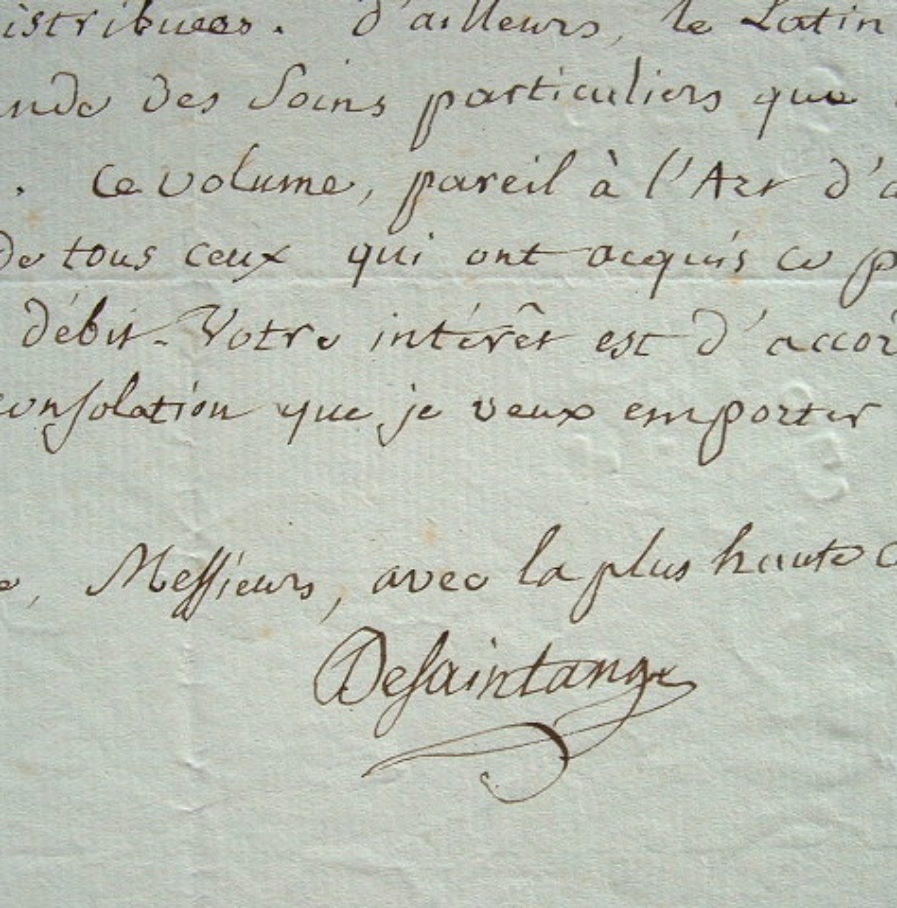 istribuees. d'ailleurs, le Latin
ande des soins particuliers que
. ce volume, pareil à l'Art d'a
de tous ceux qui ont acquis ce p
débit. Votre intérêt est d'accor
consolation que je veux emporter
e, Messieurs, avec la plus haute c
Desaintange